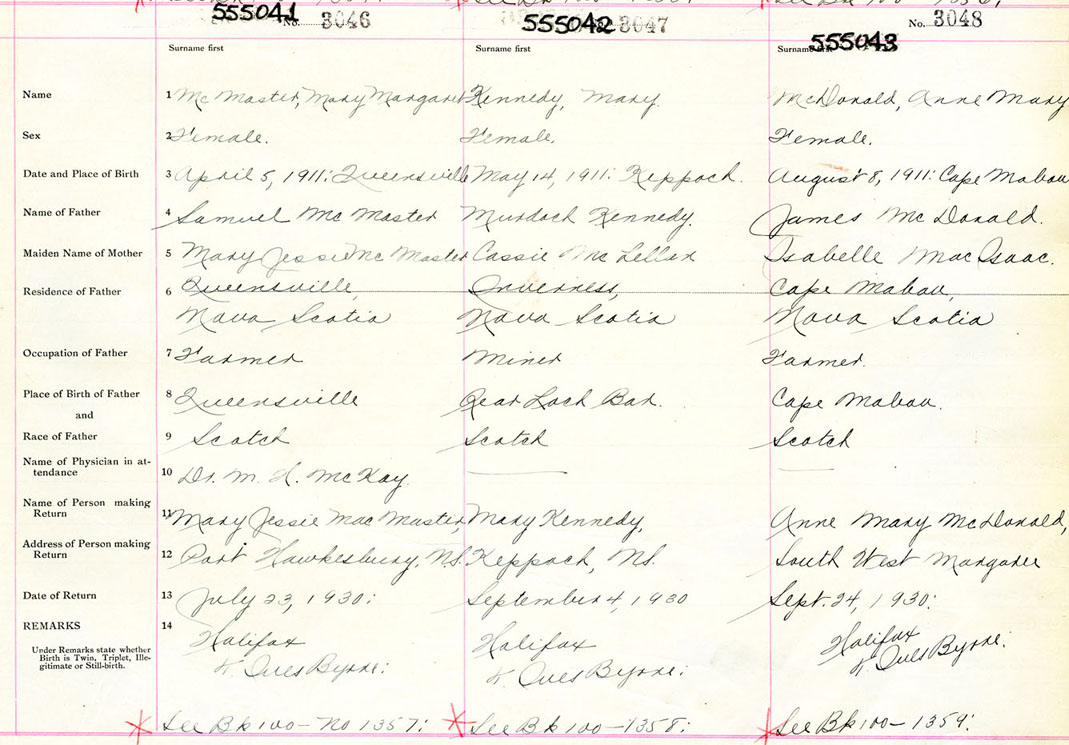 555041 No. 3046 555042 3047 No. 3048
555043
Surname first Surname first Surname first
Name 1 McMaster, Mary Margaret Kennedy, Mary. McDonald, Anne Mary
Sex 2 Female. Female. Female.
Date and Place of Birth 3 April 5, 1911: Queensville May 14, 1911: Keppoch. August 8, 1911: Cape Mabou
Name of Father 4 Samuel McMaster Murdoch Kennedy. James McDonald.
Maiden Name of Mother 5 Mary Jessie McMaster Cassie McLellan Isabelle MacIsaac.
Residence of Father 6 Queensville, Inverness, Cape Mabou,
Nova Scotia Nova Scotia Nova Scotia
Occupation of Father 7 Farmer Miner Farmer.
Place of Birth of Father 8 Queensville Rear Loch Ban. Cape Mabou.
and
Race of Father 9 Scotch Scotch Scotch
Name of Physician in at-
tendance 10 Dr. M. McKay.
Name of Person making
Return 11 Mary Jessie MacMaster, Mary Kennedy, Anne Mary McDonald,
Address of Person making
Return 12 Port Hawkesbury, N.S. Keppoch, N.S. South West Margaree
Date of Return 13 July 23, 1930: September 4, 1930 Sept. 24, 1930:
REMARKS 14 Halifax Halifax Halifax
Under Remarks state whether
Birth is Twin, Triplet, Ille-
gitimate or Still-birth.
Byrne: Byrne: Byrne:
See Bk 100 – No 1357: See Bk 100 – 1358: See Bk 100 – 1359: